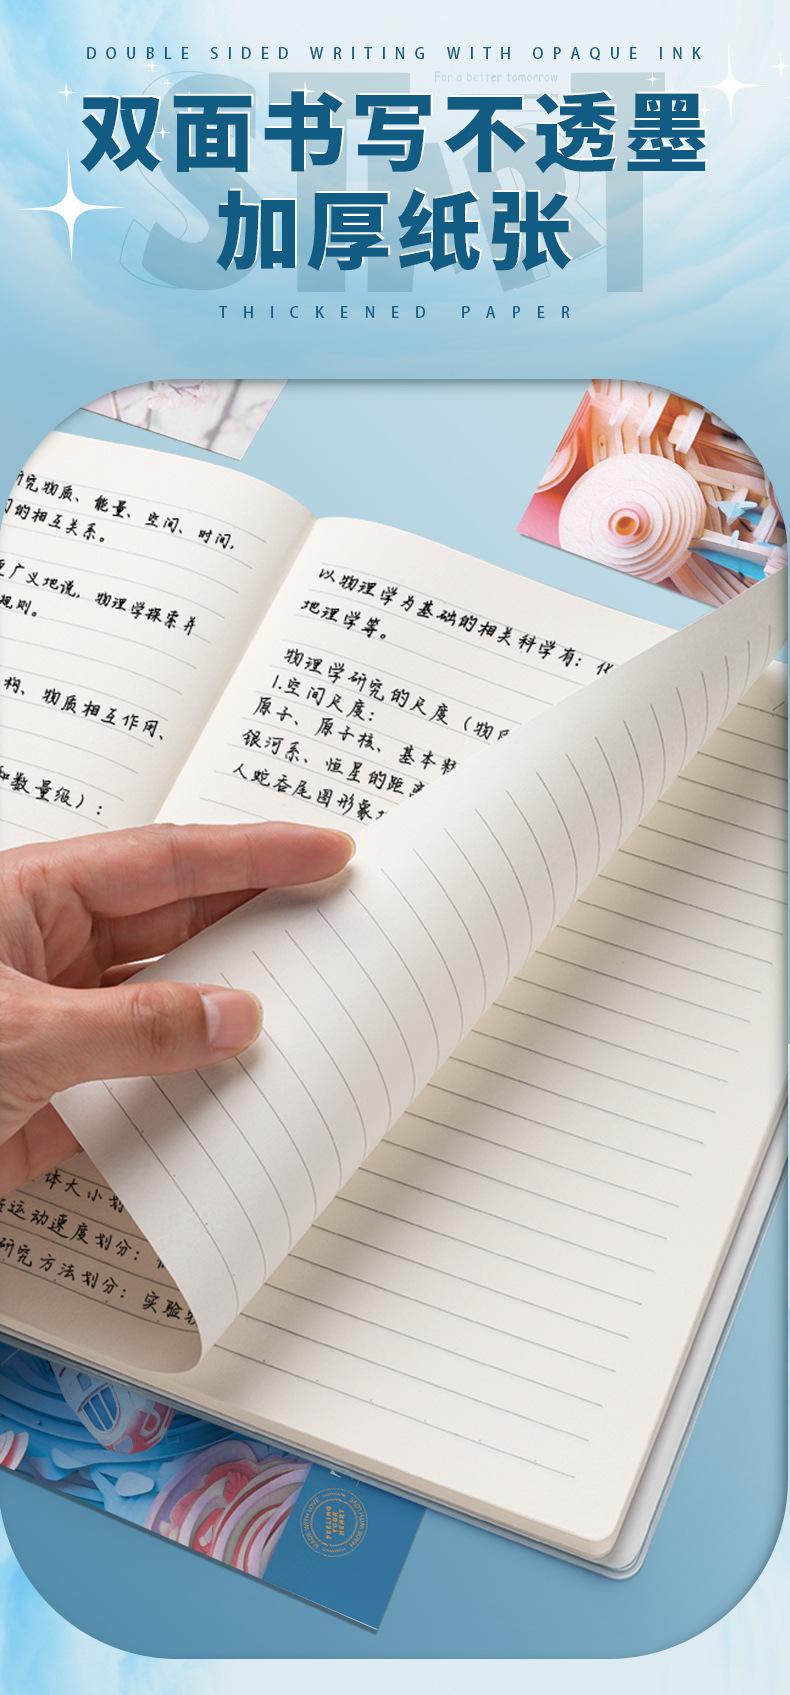 DOUBLE SIDED WRITING WITH OPAQUE INK
For a better tomorrow
START
双面书写不透墨
加厚纸张
THICKENED PAPER
研究物质、能量、空间、时间,
的相互关系。
广义地说,物理学探索并
规则。
构、物质相互作用、
和数量级):
以物理学为基础的相关科学有:化
地理学等。
物理学研究的尺度(物
1.空间尺度:
原子、原子核、基本粒
银河系、恒星的距离
人蛇吞尾图形象
体大小划
运动速度划分:
研究方法划分:实验物
MADE WITH LOVE
FEELING
YOUR
HEART